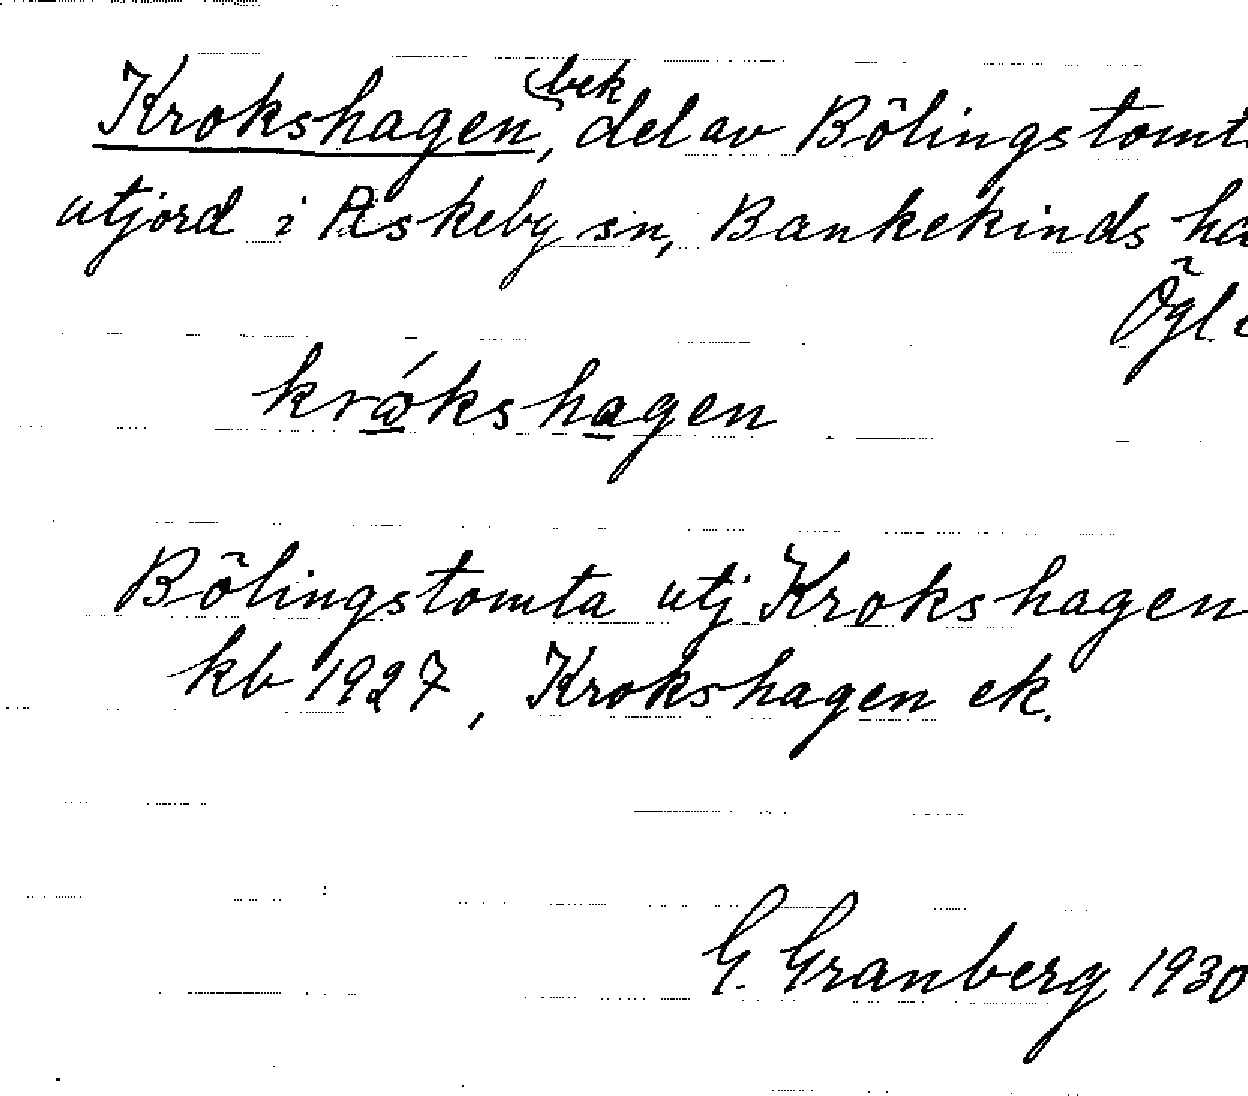 Krokshagen, bek del av Bölingstomt
utjord i Askeby sn, Bankekinds hä
Ögl
krókshagen
Bölingstomta utj Krokshagen
kb 1927, Krokshagen ek.
G. Granberg 1930